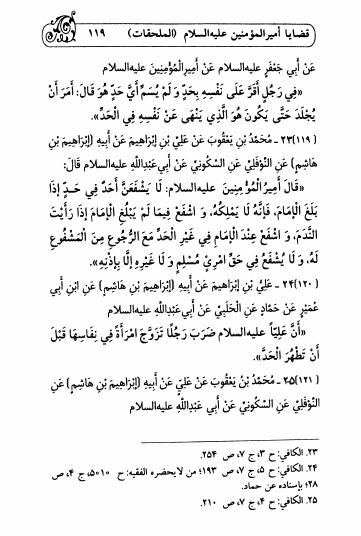 قضايا أميرالمؤمنين عليه‌السلام (الملحقات) ١١٩
عَنْ أَبِي جَعْفَرٍ عليه‌السلام عَنْ أَمِيرِالْمُؤْمِنِينَ عليه‌السلام
«فِي رَجُلٍ أَقَرَّ عَلَى نَفْسِهِ بِحَدٍّ وَ لَمْ يُسَمِّ أَيَّ حَدٍّ هُوَ قَالَ: أَمَرَ أَنْ
يُجْلَدَ حَتَّى يَكُونَ هُوَ الَّذِي يَنْهَى عَنْ نَفْسِهِ فِي الْحَدِّ».
(١١٩) ٢٣ـ مُحَمَّدُ بْنُ يَعْقُوبَ عَنْ عَلِيِّ بْنِ إِبْرَاهِيمَ عَنْ أَبِيهِ (إِبْرَاهِيمَ بْنِ
هَاشِمٍ) عَنِ النَّوْفَلِيِّ عَنِ السَّكُونِيِّ عَنْ أَبِي‌عَبْدِاللَّهِ عليه‌السلام قَالَ:
«قَالَ أَمِيرُ الْمُؤْمِنِينَ عليه‌السلام: لَا يَشْفَعَنَّ أَحَدٌ فِي حَدٍّ إِذَا
بَلَغَ الْإِمَامَ، فَإِنَّهُ لَا يَمْلِكُهُ، وَ اشْفَعْ فِيمَا لَمْ يَبْلُغِ الْإِمَامَ إِذَا رَأَيْتَ
النَّدَمَ، وَ اشْفَعْ عِنْدَ الْإِمَامِ فِي غَيْرِ الْحَدِّ مَعَ الرُّجُوعِ مِنَ الْمَشْفُوعِ
لَهُ، وَ لَا يُشْفَعُ فِي حَقِّ امْرِئٍ مُسْلِمٍ وَ لَا غَيْرِهِ إِلَّا بِإِذْنِهِ».
(١٢٠) ٢٤ـ عَلِيُّ بْنِ إِبْرَاهِيمَ عَنْ أَبِيهِ (إِبْرَاهِيمَ بْنِ هَاشِمٍ) عَنِ ابْنِ أَبِي
عُمَيْرٍ عَنْ حَمَّادٍ عَنِ الْحَلَبِيِّ عَنْ أَبِي‌عَبْدِاللَّهِ عليه‌السلام
«أَنَّ عَلِيّاً عليه‌السلام ضَرَبَ رَجُلًا تَزَوَّجَ امْرَأَةً فِي نِفَاسِهَا قَبْلَ
أَنْ تَطْهُرَ الْحَدَّ».
(١٢١) ٢٥ـ مُحَمَّدُ بْنُ يَعْقُوبَ عَنْ عَلِيٍّ عَنْ أَبِيهِ (إِبْرَاهِيمَ بْنِ هَاشِمٍ) عَنِ
النَّوْفَلِيِّ عَنِ السَّكُونِيِّ عَنْ أَبِي عَبْدِاللَّهِ عليه‌السلام
٢٣. الكافي: ح ٣، ج ٧، ص ٢٥٤.
٢٤. الكافي: ح ٥، ج ٧، ص ١٩٣؛ من لايحضره الفقيه: ح ٥٠١٠، ج ٤، ص
٢٨؛ بإسناده عن حماد.
٢٥. الكافي: ح ٤، ج ٧، ص ٢١٠.